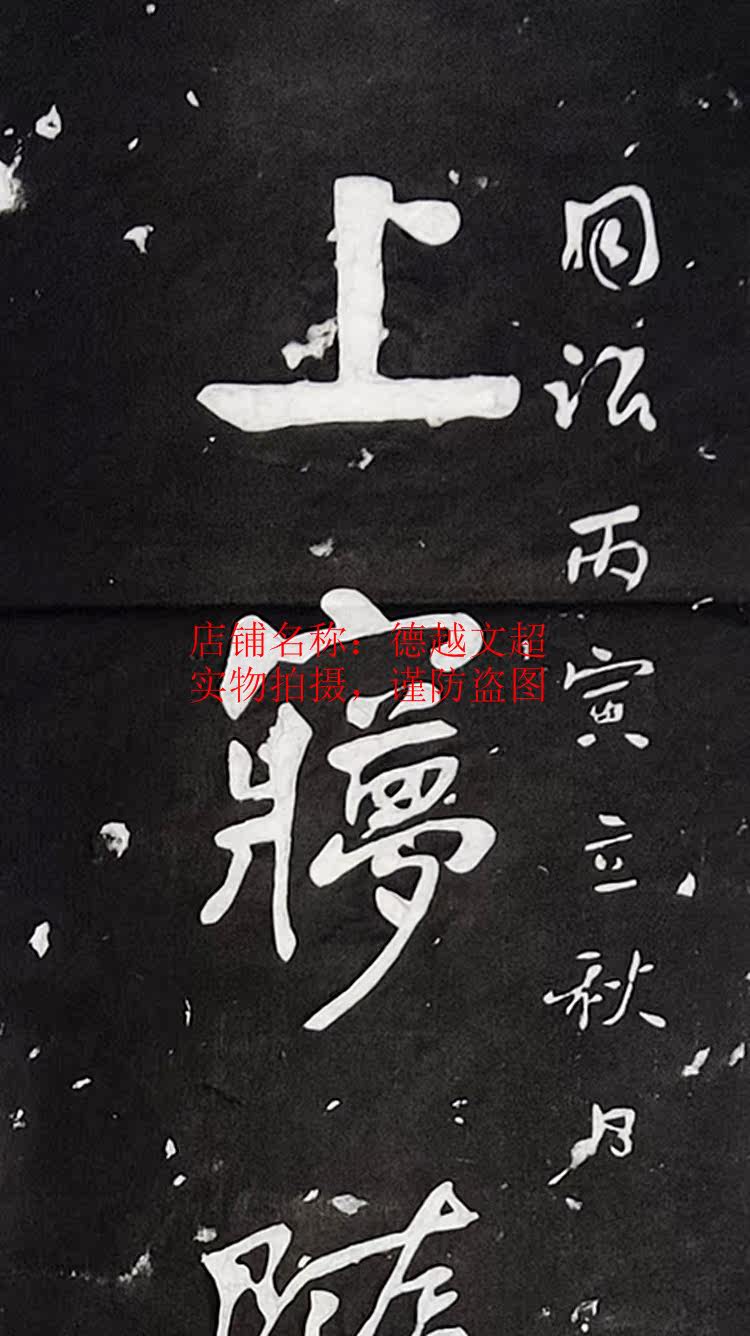 同治丙寅立秋月
上㝱
店铺名称：德越文超
实物拍摄，谨防盗图